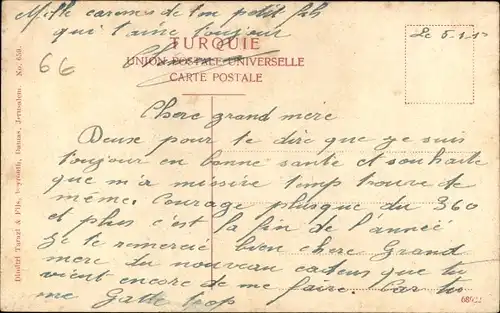 Mille caresses de ton petit fils
qui t'aime toujour
Le 5.1.1
66
TURQUIE
UNION POSTALE UNIVERSELLE
CARTE POSTALE
Chere grand mere
Deuse pour te dire que je suis
toujour en bonne santé et souhaite
que m'a missive temp trouve te
meme. Courage plusque du 360
et plus c'est la fin de l'année
je te remercie bien chere Grand
mere du nouveau cadeus que tu
vient encore de me faire. Car tu
me Gatte trop
Dimitri Tarazi & Fils, Beyrouth, Damas, Jerusalem. No. 659.